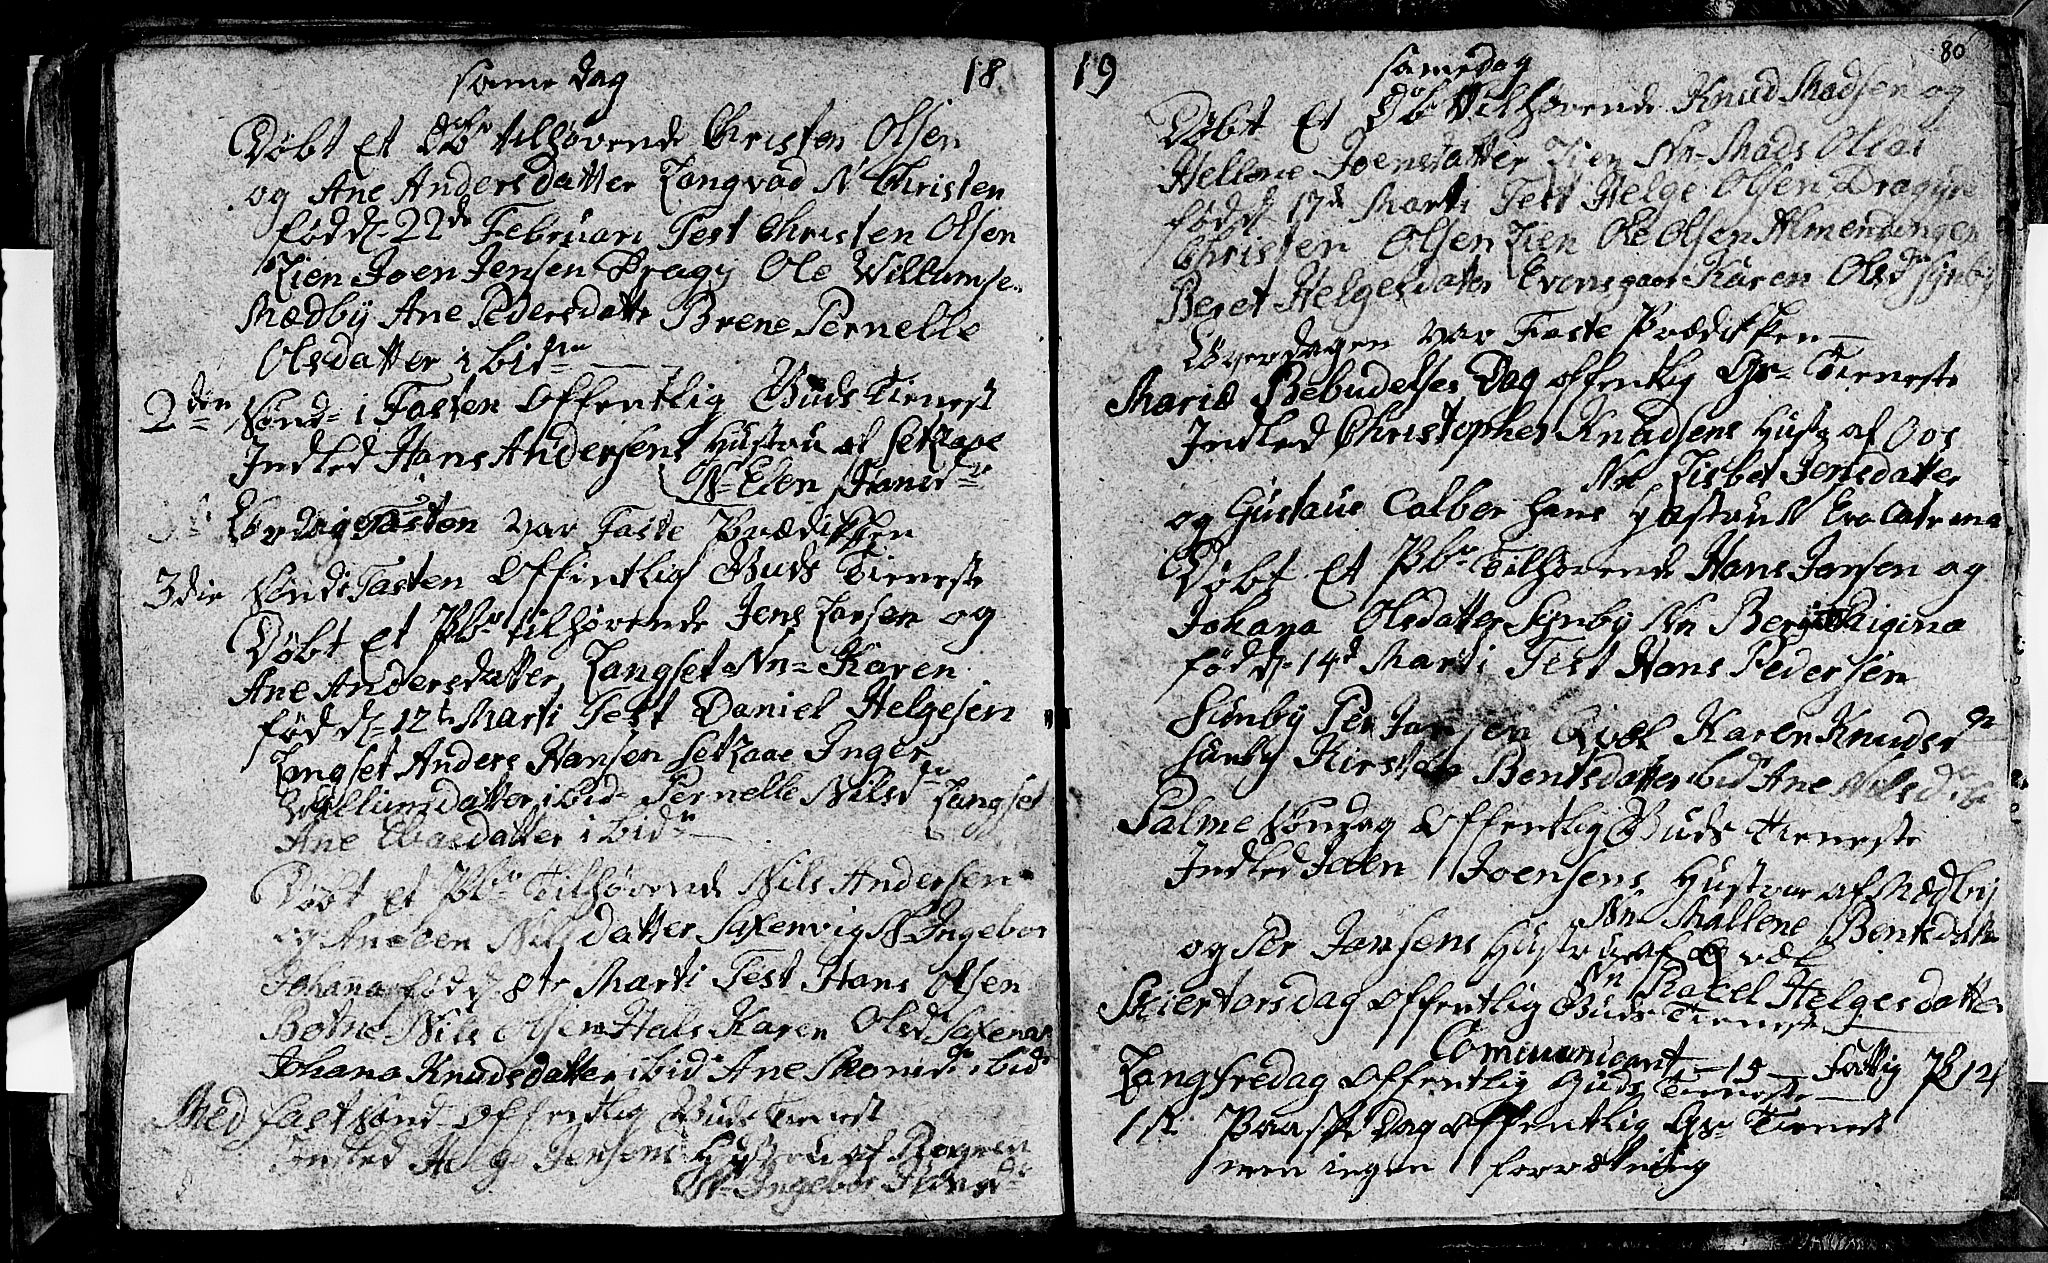 18
same dag
Døbt Et Db tilhørende Christen Olsen
og Ane Andersdatter Langvad N Christen
fød d 22de Februari Test Christen Olsen
Lien Joen Jensen Dragy Ole Willumse
Mædby Ane Pedersdattr Brene Pernelle
Olsdatter ibidm
2den Sønd i Fasten offentlig Guds Tienest
Indled Hans Andersens Hustru af Setzaae
N Elen Hansdr
Fasten var Faste Prædikken
3die Sønd i Fasten offintlig Guds Tieneste
Døbt Et Pbr tilhørende Jens Larsen og
Ane Andersdatter Langset Nn Karen
fød d 12te Marti Test Daniel Helgesen
Langset Anders Hansen Setzaae Inger
Willumsdatter ibid Pernelle Nilsd Langset
Ane datter ibidm
Døbt et Pbr Tilhørende Nils Andersen
og Nilsdatter Saxenvig N Ingebor
Johana fød d 8te Marti Test Hans Olsen
Botne Nils Olsen Hals Karen Olsd
Johana Knudsdatter ibid Ane ibid
Med fast Sønd offentlig Guds Tienest
Indled Jensens Hustru af
N Ingebor
19
80
samedag
Døbt Et Db Tilhørende Knud Madsen og
Hellene Joensdatter Lien Nn Mads Olai
fød d 17d Marti Test Helge Olsen Dragye
Christen Olsen Lien Ole Olsen Almendingen
Beret Helgesdatter Evensgaar Karen Olsd Synby
Løverdagen var Faste Prædikken
Mariæ Bebudelses Dag offentlig Gs Tieneste
Indled Christopher Knudsens Hustr af Oos
Nn Lisbet Jensdatter
og Gustaus Calber hans Hustrue Eva Catrina
Døbt Et Pbr Tilhørende Hans Jansen og
Johana Olsdatter Synby Nn Berget Rigina
fød d 14d Marti Test Hans Pedersen
Sünby Per Jansen Qvæl Karen Knudsd
Sünby Kirsten Bentsdatter ibid Ane Nilsd ib
Palme Søndag offentlig Guds Tieneste
Indled Joen Joensens Hustrue af Mædby
Nn Mallene Bentsdatter
og Per Jansens Hustrue af Qvæl
Nn Rakel Helgesdatter
Skiertorsdag offentlig Guds Tieneste
Communicant 15 Fattig
Langfredag offentlig Guds Tieneste
1st Paaske Dag offentlig Gs Tienest
men ingen forretning